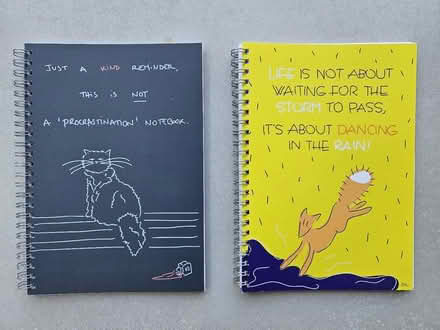 JUST A KIND REMINDER,
THIS IS NOT
A 'PROCRASTINATION' NOTEBOOK.
LIFE IS NOT ABOUT
WAITING FOR THE
STORM TO PASS,
IT'S ABOUT DANCING
IN THE RAIN!